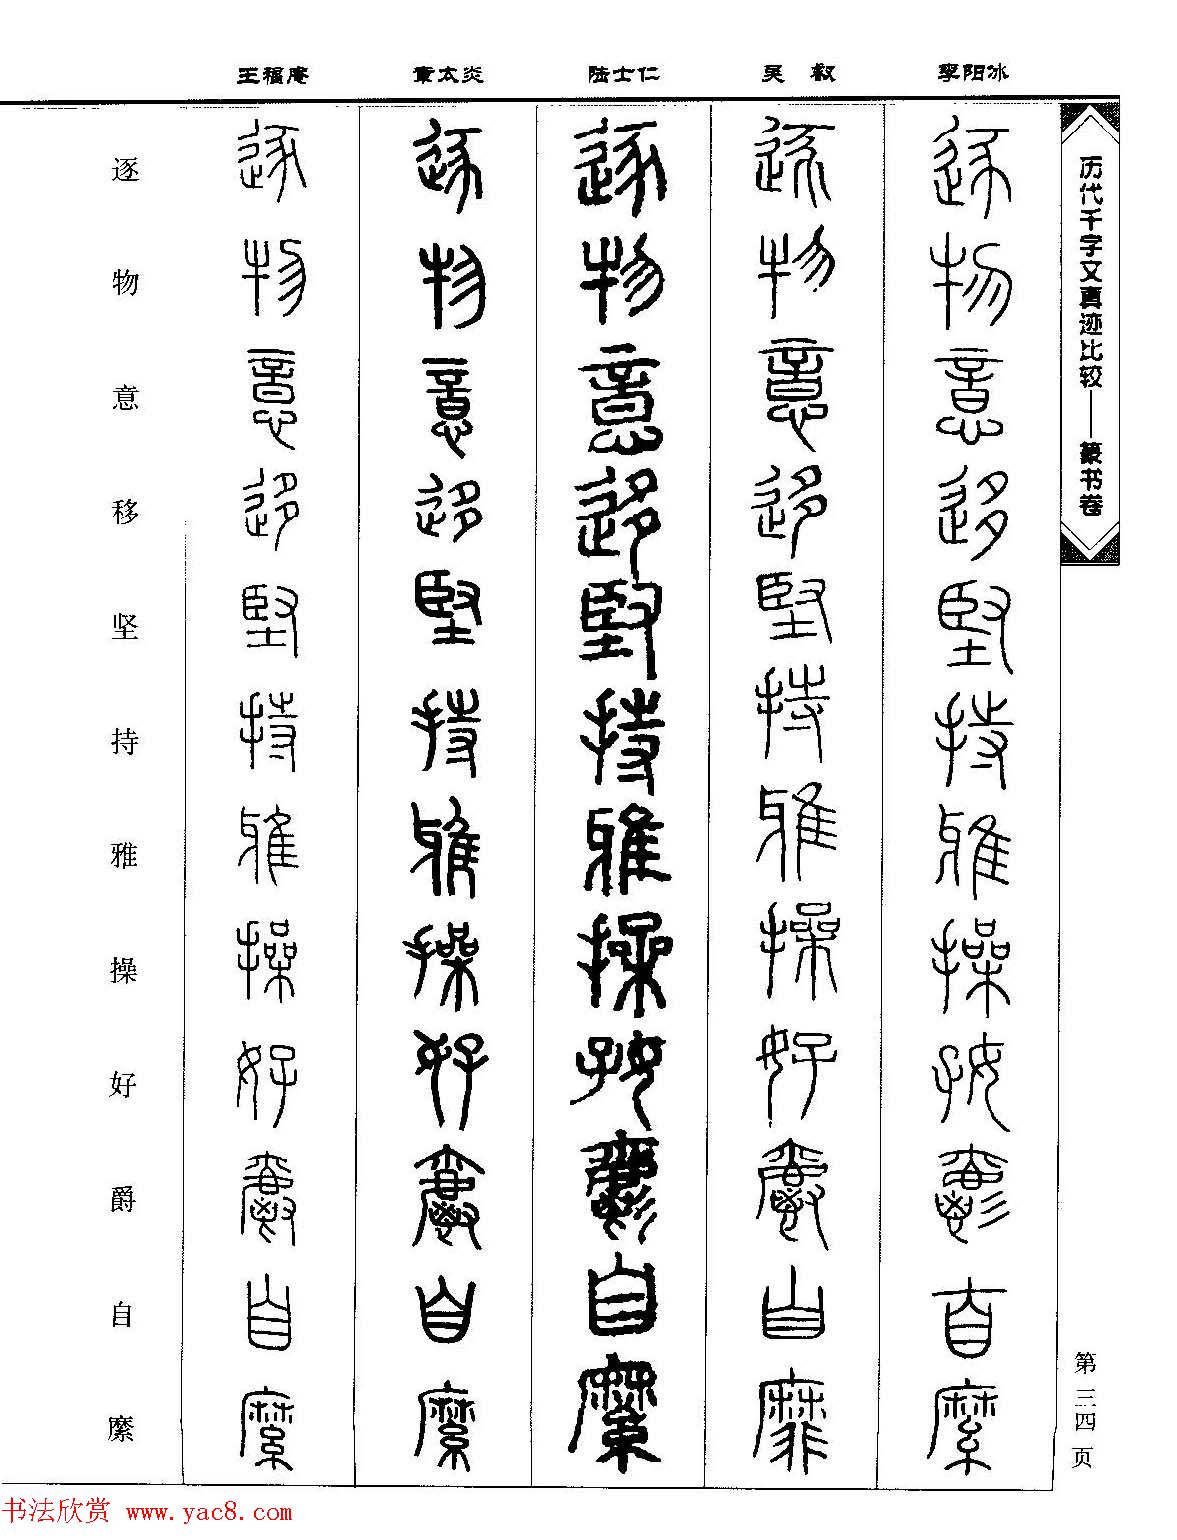 历代千字文真迹比较——篆书卷
第三四页
李阳冰
吴叡
陆士仁
章太炎
王福庵
逐物意移坚持雅操好爵自縻
逐物意移坚持雅操好爵自靡
逐物意移坚持雅操好爵自縻
逐物意移坚持雅操好爵自縻
逐物意移坚持雅操好爵自縻
逐物意移坚持雅操好爵自縻
书法欣赏 www.yac8.com